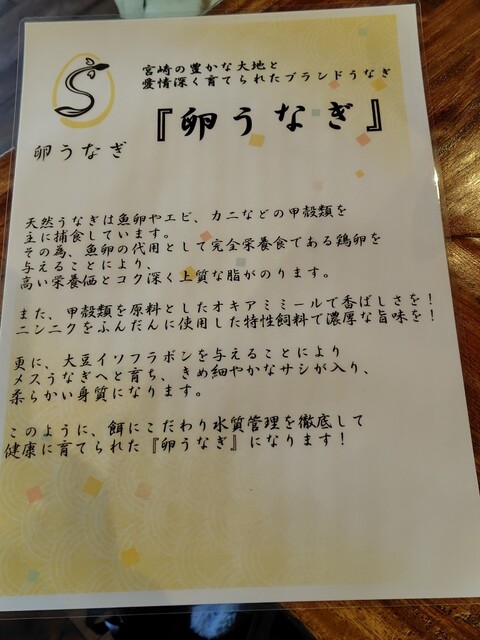 宮崎の豊かな大地と
愛情深く育てられたブランドうなぎ
『卵うなぎ』
卵うなぎ
天然うなぎは魚卵やエビ、カニなどの甲殻類を
主に捕食しています。
その為、魚卵の代用として完全栄養食である鶏卵を
与えることにより、
高い栄養価とコク深く上質な脂がのります。
また、甲殻類を原料としたオキアミミールで香ばしさを！
ニンニクをふんだんに使用した特性飼料で濃厚な旨味を！
更に、大豆イソフラボンを与えることにより
メスうなぎへと育ち、きめ細やかなサシが入り、
柔らかい身質になります。
このように、餌にこだわり水質管理を徹底して
健康に育てられた『卵うなぎ』になります！